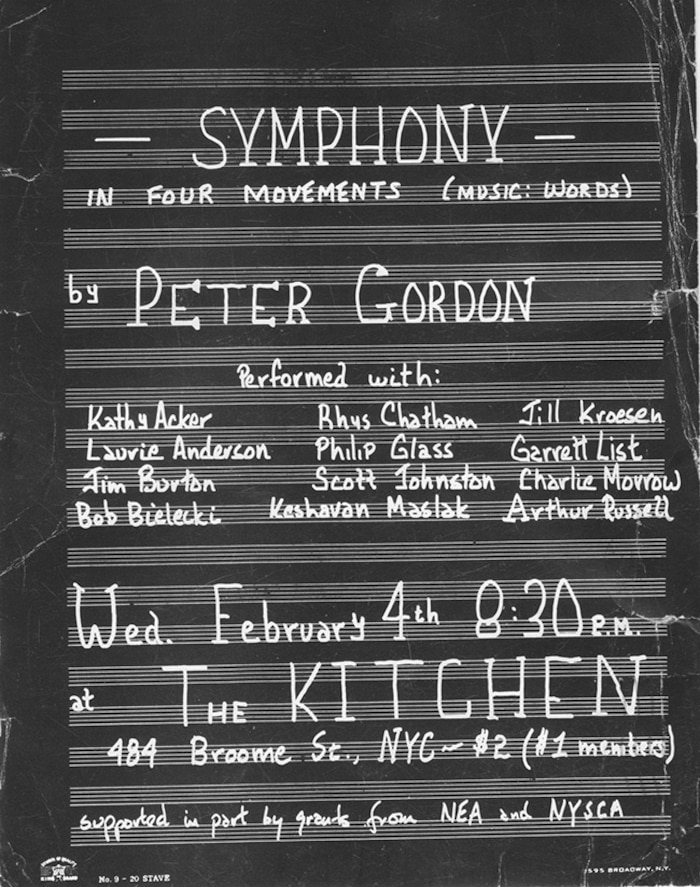 — SYMPHONY —
IN FOUR MOVEMENTS (MUSIC: WORDS)
by PETER GORDON
Performed with:
Kathy Acker Rhys Chatham Jill Kroesen
Laurie Anderson Philip Glass Garrett List
Jim Burton Scott Johnston Charlie Morrow
Bob Bielecki Keshavan Maslak Arthur Russell
Wed. February 4th 8:30 P.M.
at THE KITCHEN
484 Broome St., NYC – $2 ($1 members)
supported in part by grants from NEA and NYSCA
No. 9 - 20 STAVE
1595 BROADWAY, N.Y.